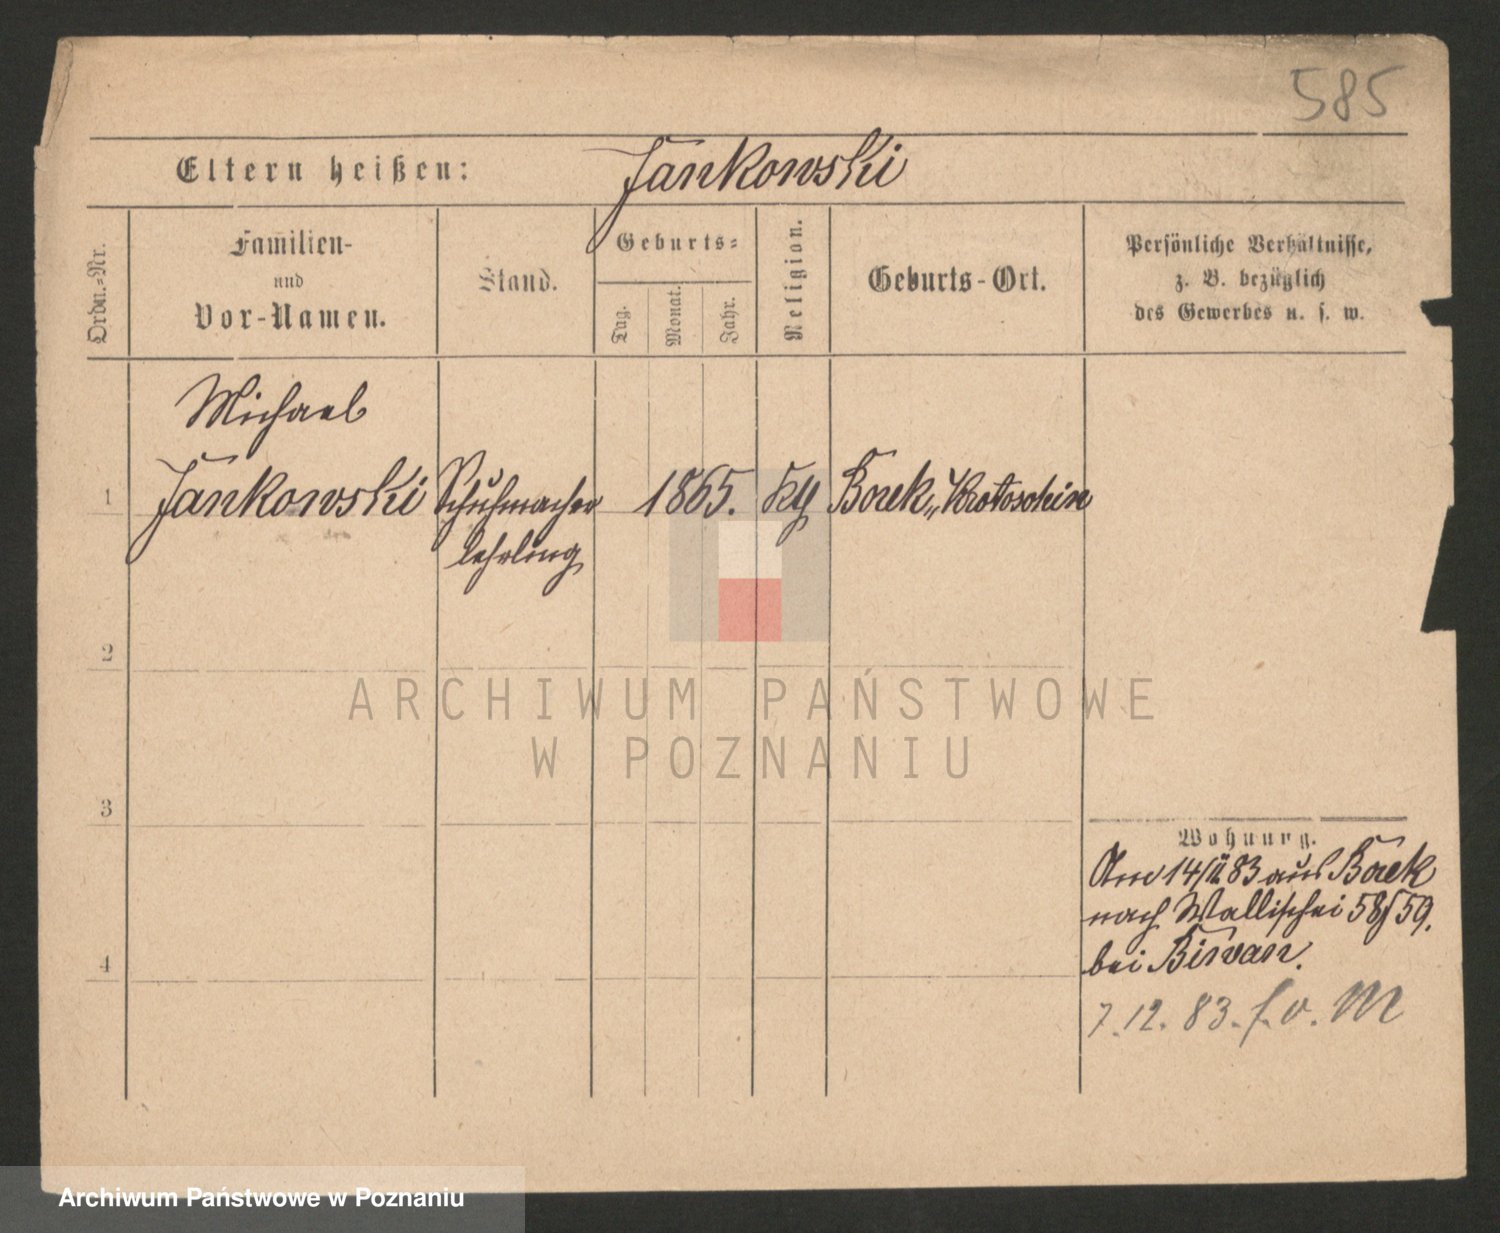 585
Eltern heißen: Jankowski
Ordn.-Nr.
Familien-
und
Vor-Namen.
Stand.
Geburts-
Tag.
Monat.
Jahr.
Religion.
Geburts-Ort.
Persönliche Verhältnisse,
z. B. bezüglich
des Gewerbes u. s. w.
Michael
1 Jankowski Schuhmacher 1865. Borek, Krotoschin
lehrling
2
3
4
Wohnung.
Am 14/II 83 aus Borek
nach Wallischei 58/59.
bei Birvan.
7.12.83. f. v. M
ARCHIWUM PAŃSTWOWE
W POZNANIU
Archiwum Państwowe w Poznaniu